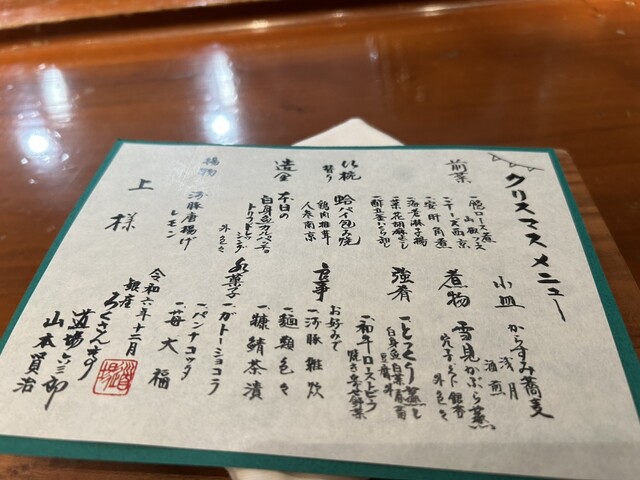 クリスマスメニュー
小皿 からすみ蕎麦
浅月
酒煎
前菜
一、鴨ロース煮
一、チーズ西京
一、安肝角煮
一、海老楊子揚
一、菜花胡麻よごし
煮物 雪見かぶら蒸
穴子 百合根 銀杏
外色々
強肴
一、とくり蒸し
白身魚 白菜 春菊
豆腐 外
一、和牛ローストビーフ
焼き
吸椀替り 蛤パイ包み焼
鶏肉 椎茸
人参 南京
造里 本日の
白身魚カルパッチョ
外色々
食事 お好みで
一、河豚雑炊
一、麺類色々
一、鯖茶漬
揚物 河豚唐揚げ
レモン
水菓子
一、ガトーショコラ
一、パンナコッタ
一、苺大福
上様
令和六年十二月
銀座 ろくさん亭
道場六三郎
山本賢治
道場